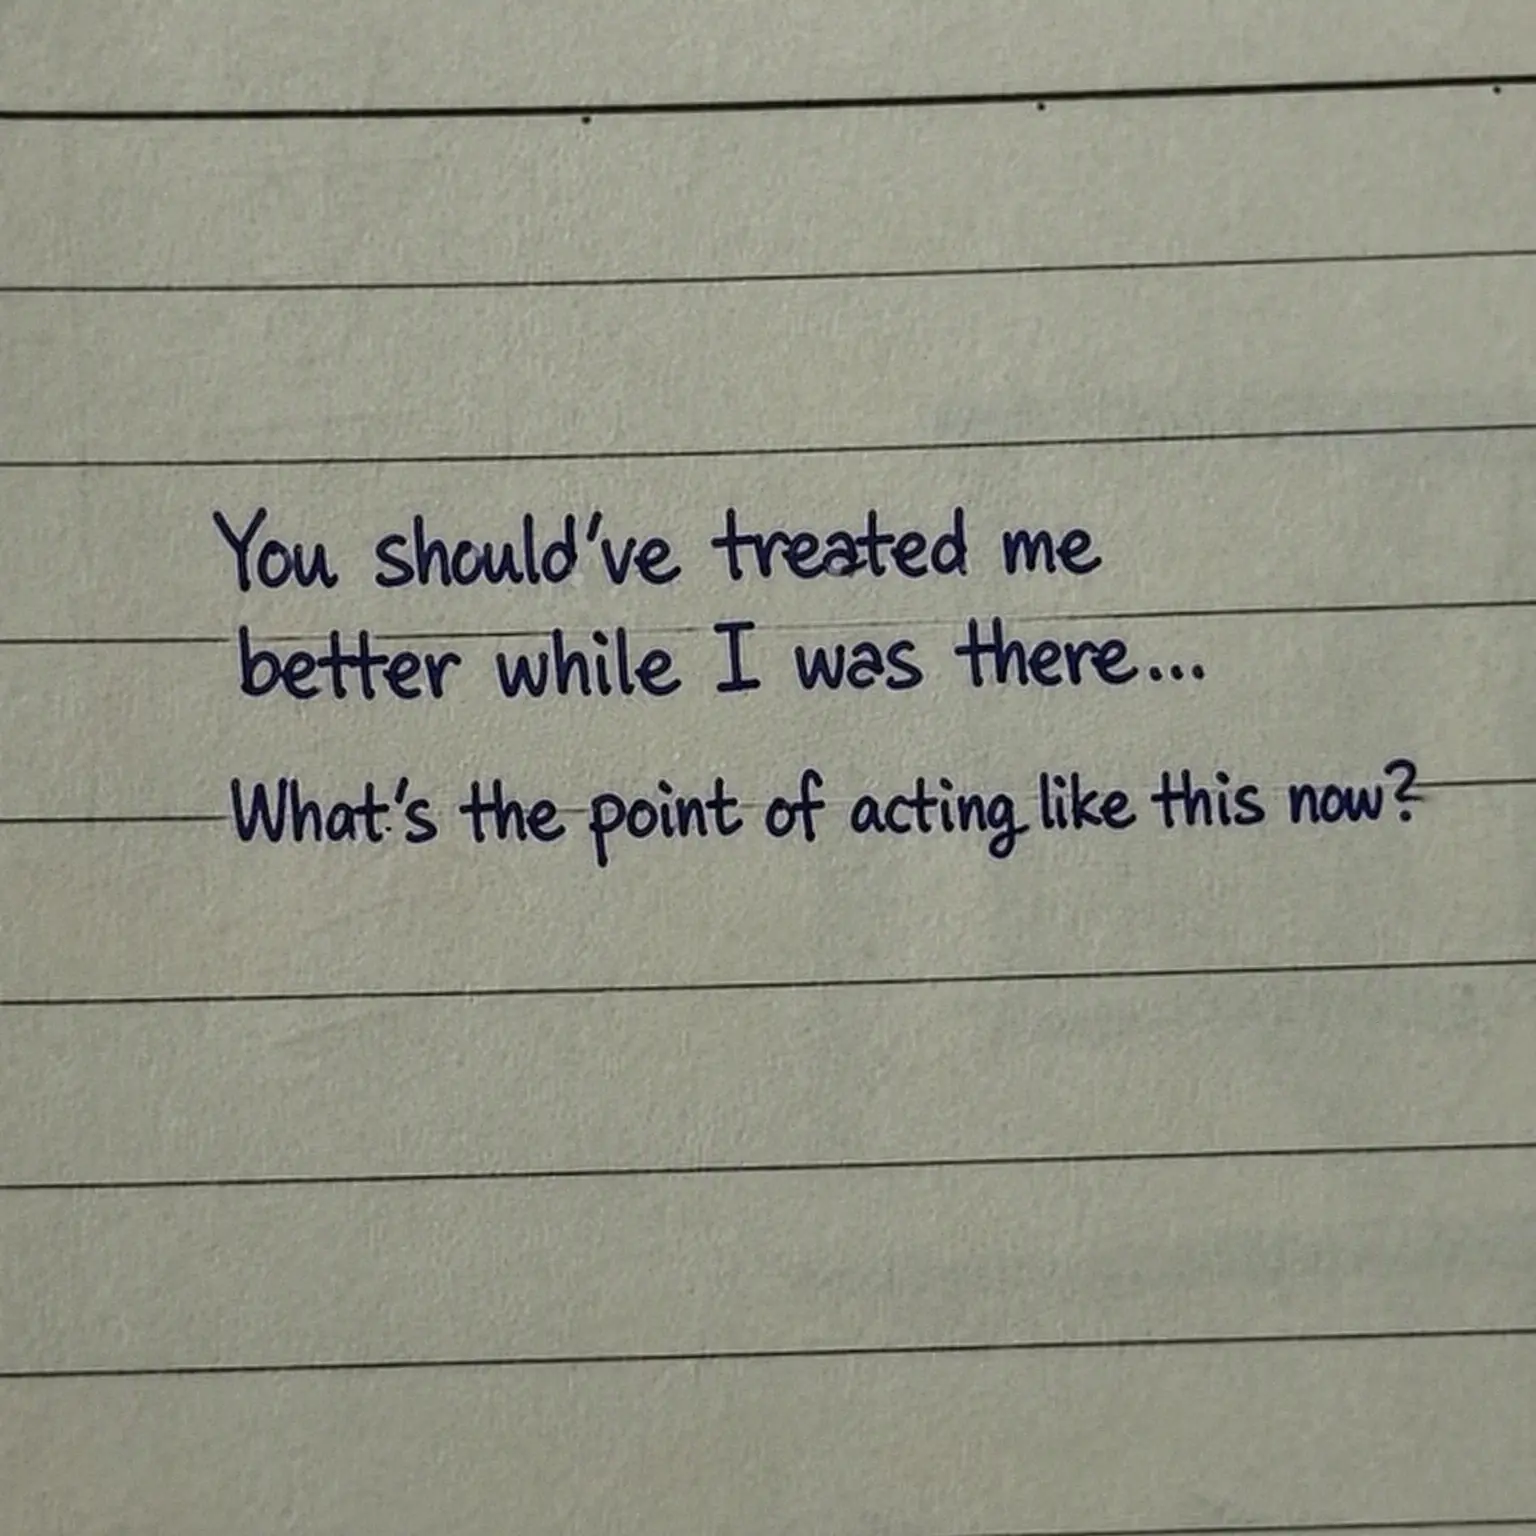 You should've treated me
better while I was there...
What's the point of acting like this now?